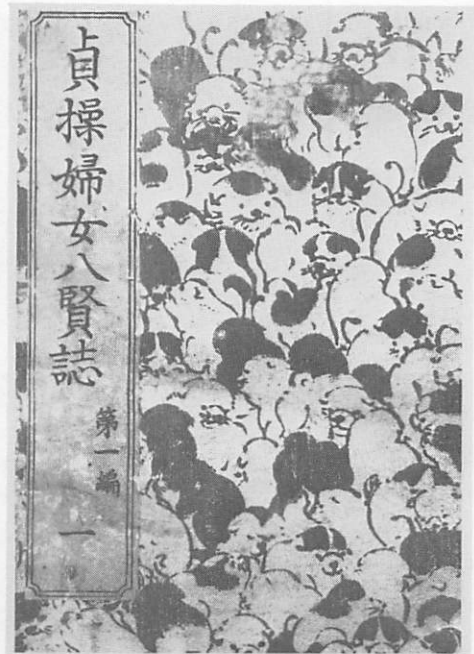 貞操婦女八賢誌
第一編
一